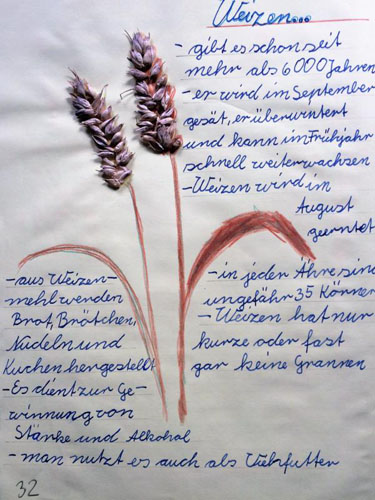 Weizen...
- gibt es schon seit
mehr als 6000 Jahren
- er wird im September
gesät, er überwintert
und kann im Frühjahr
schnell weiterwachsen
- Weizen wird im
August
geerntet
- in jeder Ähre sind
ungefähr 35 Körner
- Weizen hat nur
kurze oder fast
gar keine Grannen
- aus Weizen-
mehl werden
Brot, Brötchen,
Nudeln und
Kuchen hergestellt
- Es dient zur Ge-
winnung von
Stärke und Alkohol
- man nutzt es auch als Viehfutter
32